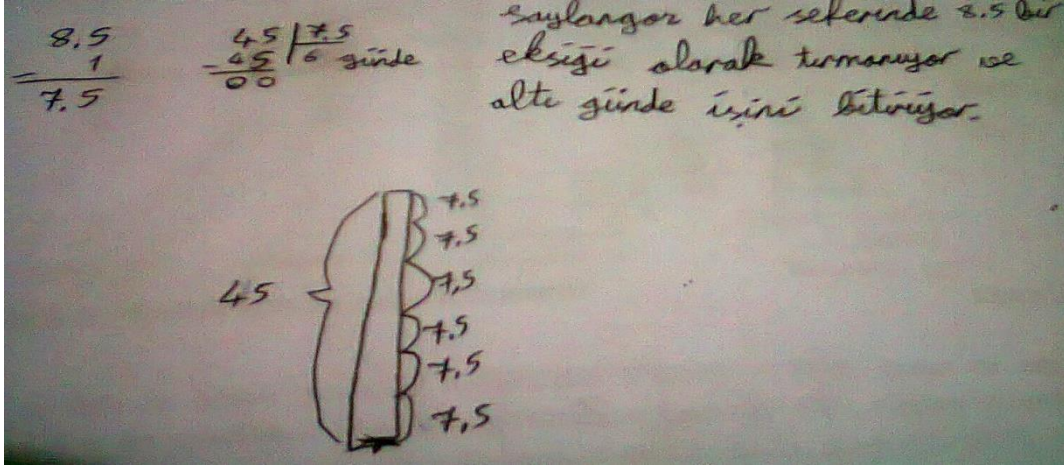 8,5
1
7.5
45 7.5
- 45 6 günde
00
Saylangoz her seferinde 8.5 bir
eksiği olarak tırmanıyor ve
altı günde işini bitiriyor.
7.5
7.5
7,5
45
7.5
7,5
7,5